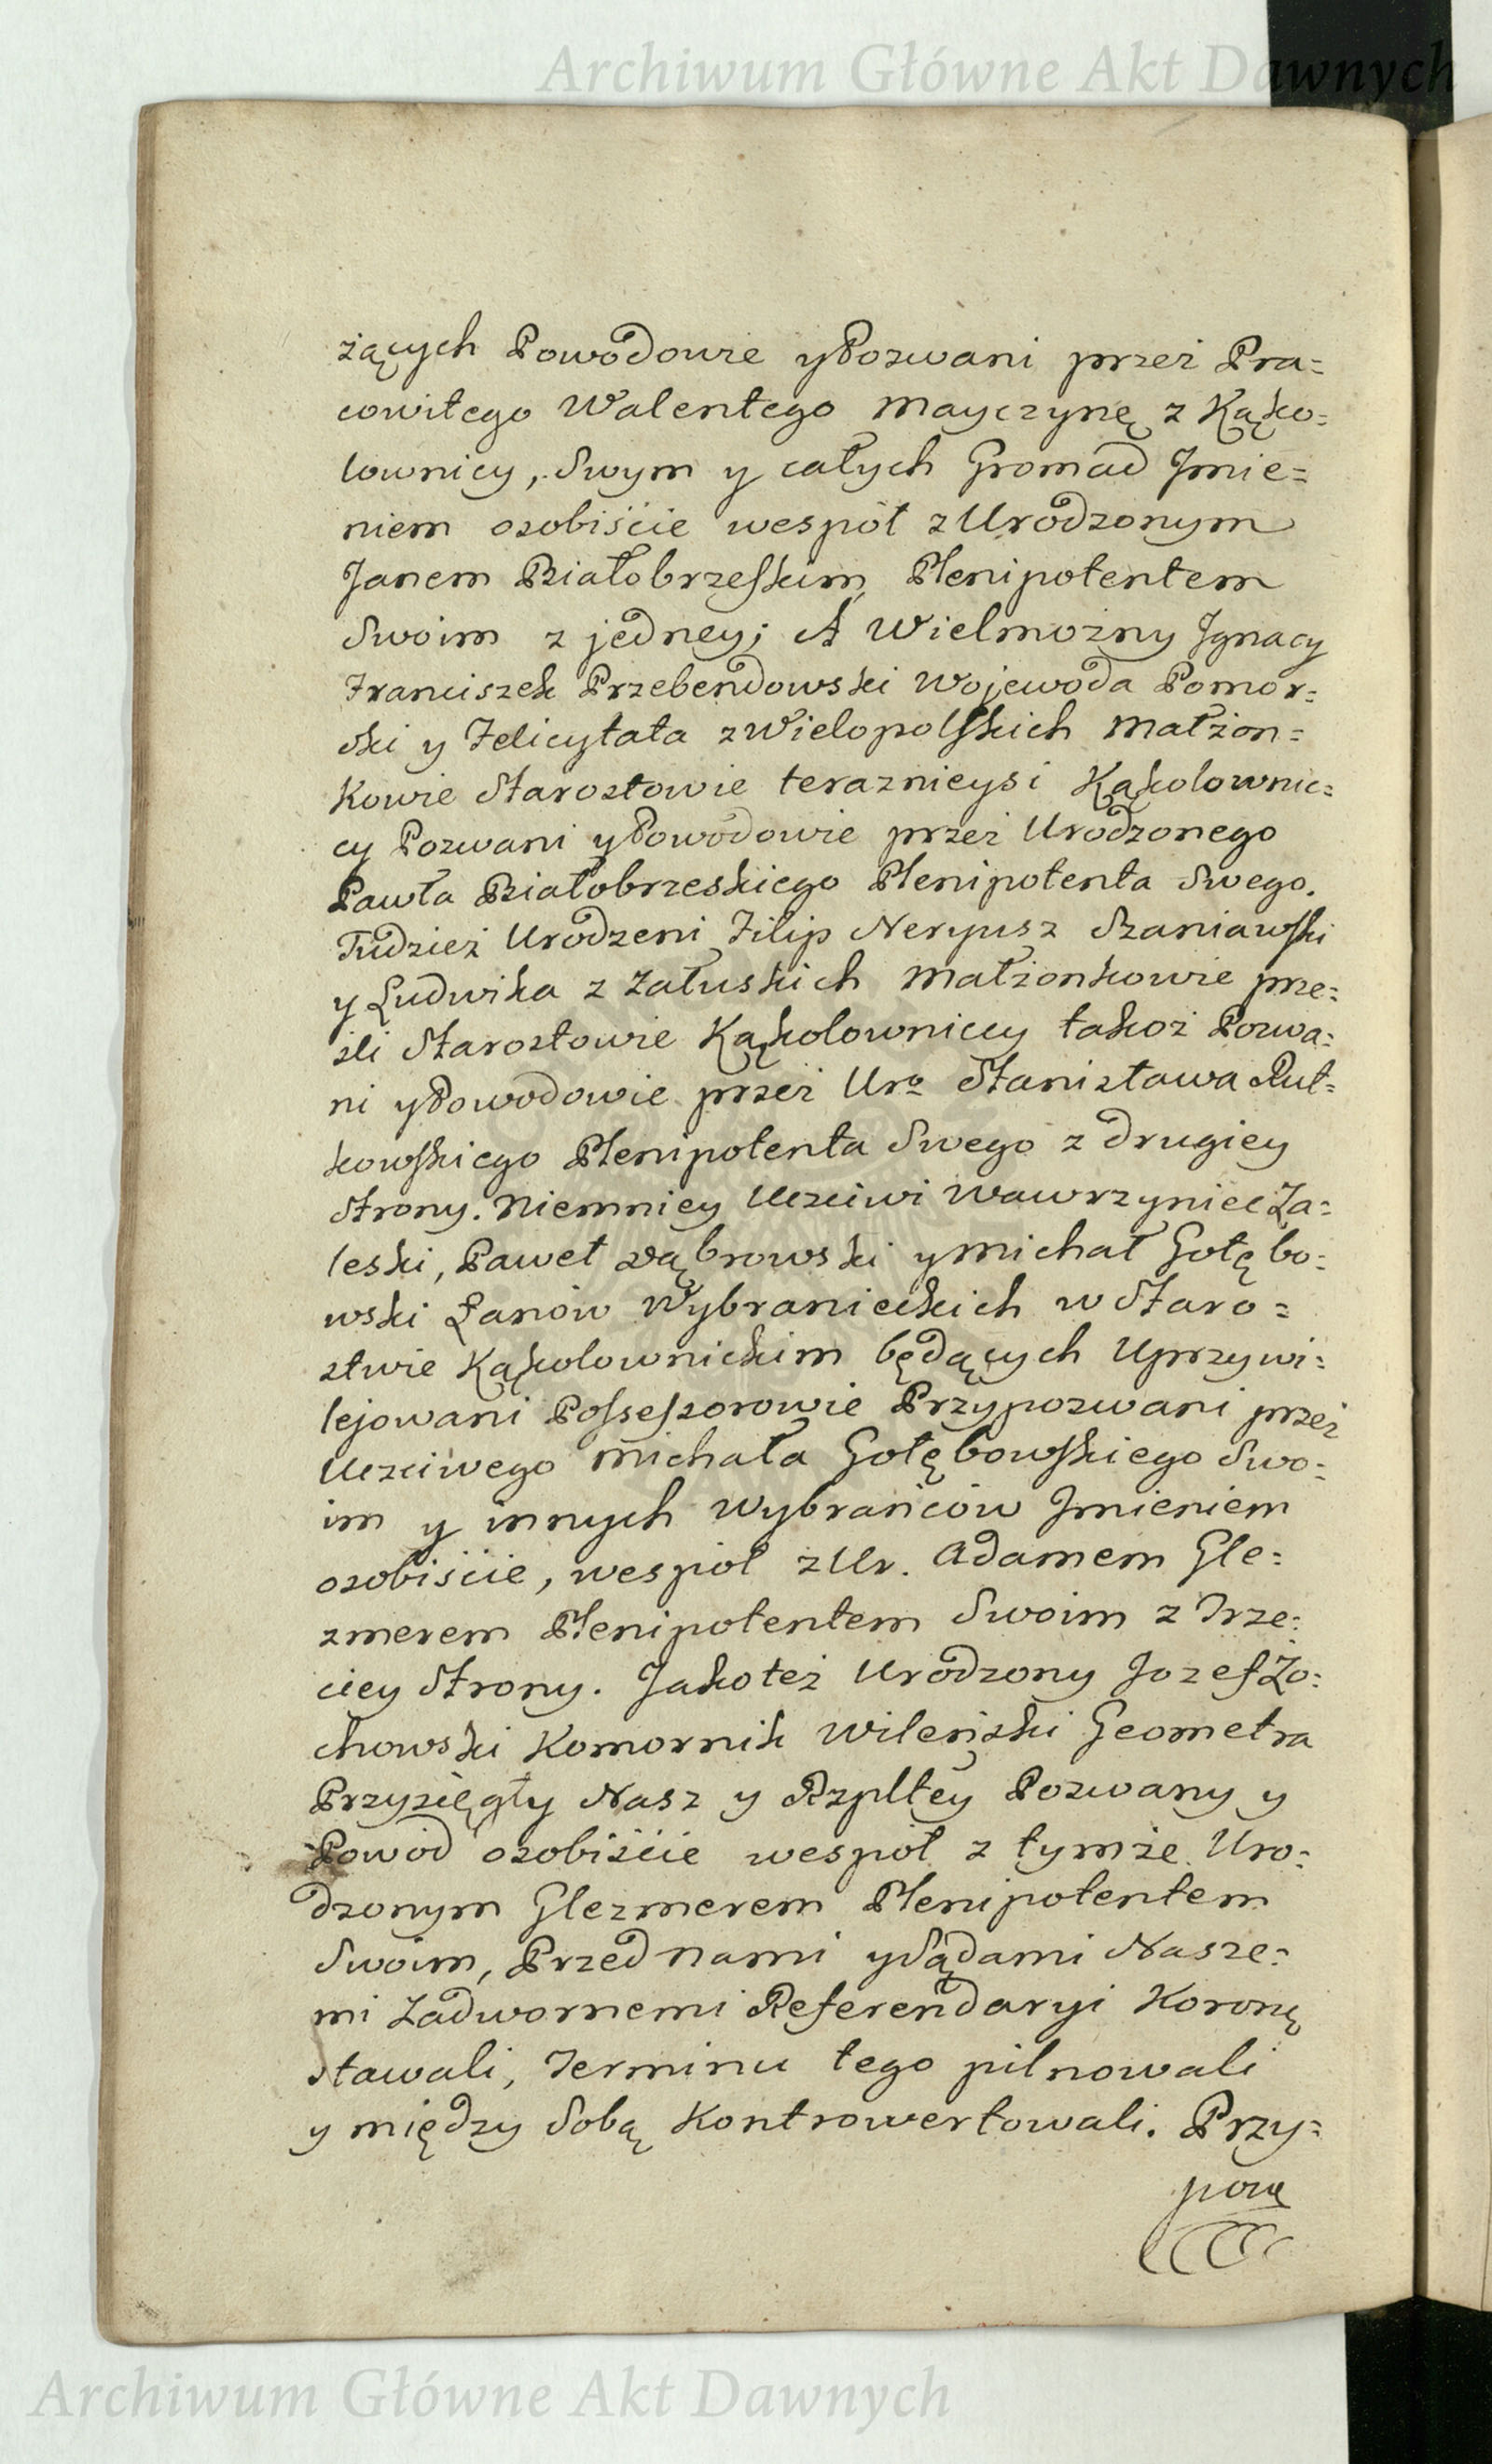 Archiwum Główne Akt Dawnych
żących Powodowie y Pozwani przez Pra=
cowitego Walentego Mayczynę z Kąko=
lownicy, Swym y całych Gromad Jmie=
niem osobiście wespół z Urodzonym
Janem Białobrzeskim Plenipotentem
Swoim z jedney; A Wielmożny Ignacy
Franciszek Przebendowski Wojewoda Pomor=
ski y Felicytata z Wielopolskich Małżon=
kowie Starostowie teraznieysi Kąkolownic=
cy Pozwani y Powodowie przez Urodzonego
Pawła Białobrzeskiego Plenipotenta Swego.
Tudzież Urodzeni Filip Neryusz Szaniawski
y Ludwika z Załuskich Małżonkowie prze=
śli Starostowie Kąkolowniccy takoż Pozwa=
ni y Powodowie przez Uro Stanisława Rut=
kowskiego Plenipotenta Swego z drugiey
Strony. Niemniey Uczciwi Wawrzyniec Za=
leski, Paweł Dąbrowski y Michał Gołębo=
wski Łanów Wybranieckich w Staro=
stwie Kąkolownickim będących Uprzywi=
lejowani Possessorowie Przypozwani przez
Uczciwego Michała Gołębowskiego Swo=
im y innych Wybrańców Jmieniem
osobiście, wespół z Ur. Adamem Gle=
zmerem Plenipotentem Swoim z Trze=
ciey Strony. Jakoteż Urodzony Jozef Żo=
chowski Komornik Wileński Geometra
Przysięgły Nasz y Rzpltey Pozwany y
Powód osobiście wespół z tymże Uro=
dzonym Glezmerem Plenipotentem
Swoim, Przed Nami y Sądami Nasze=
mi Zadwornemi Referendaryi Koronę
stawali, Terminu tego pilnowali
y między Sobą Kontrowertowali. Przy=
pozw
Archiwum Główne Akt Dawnych